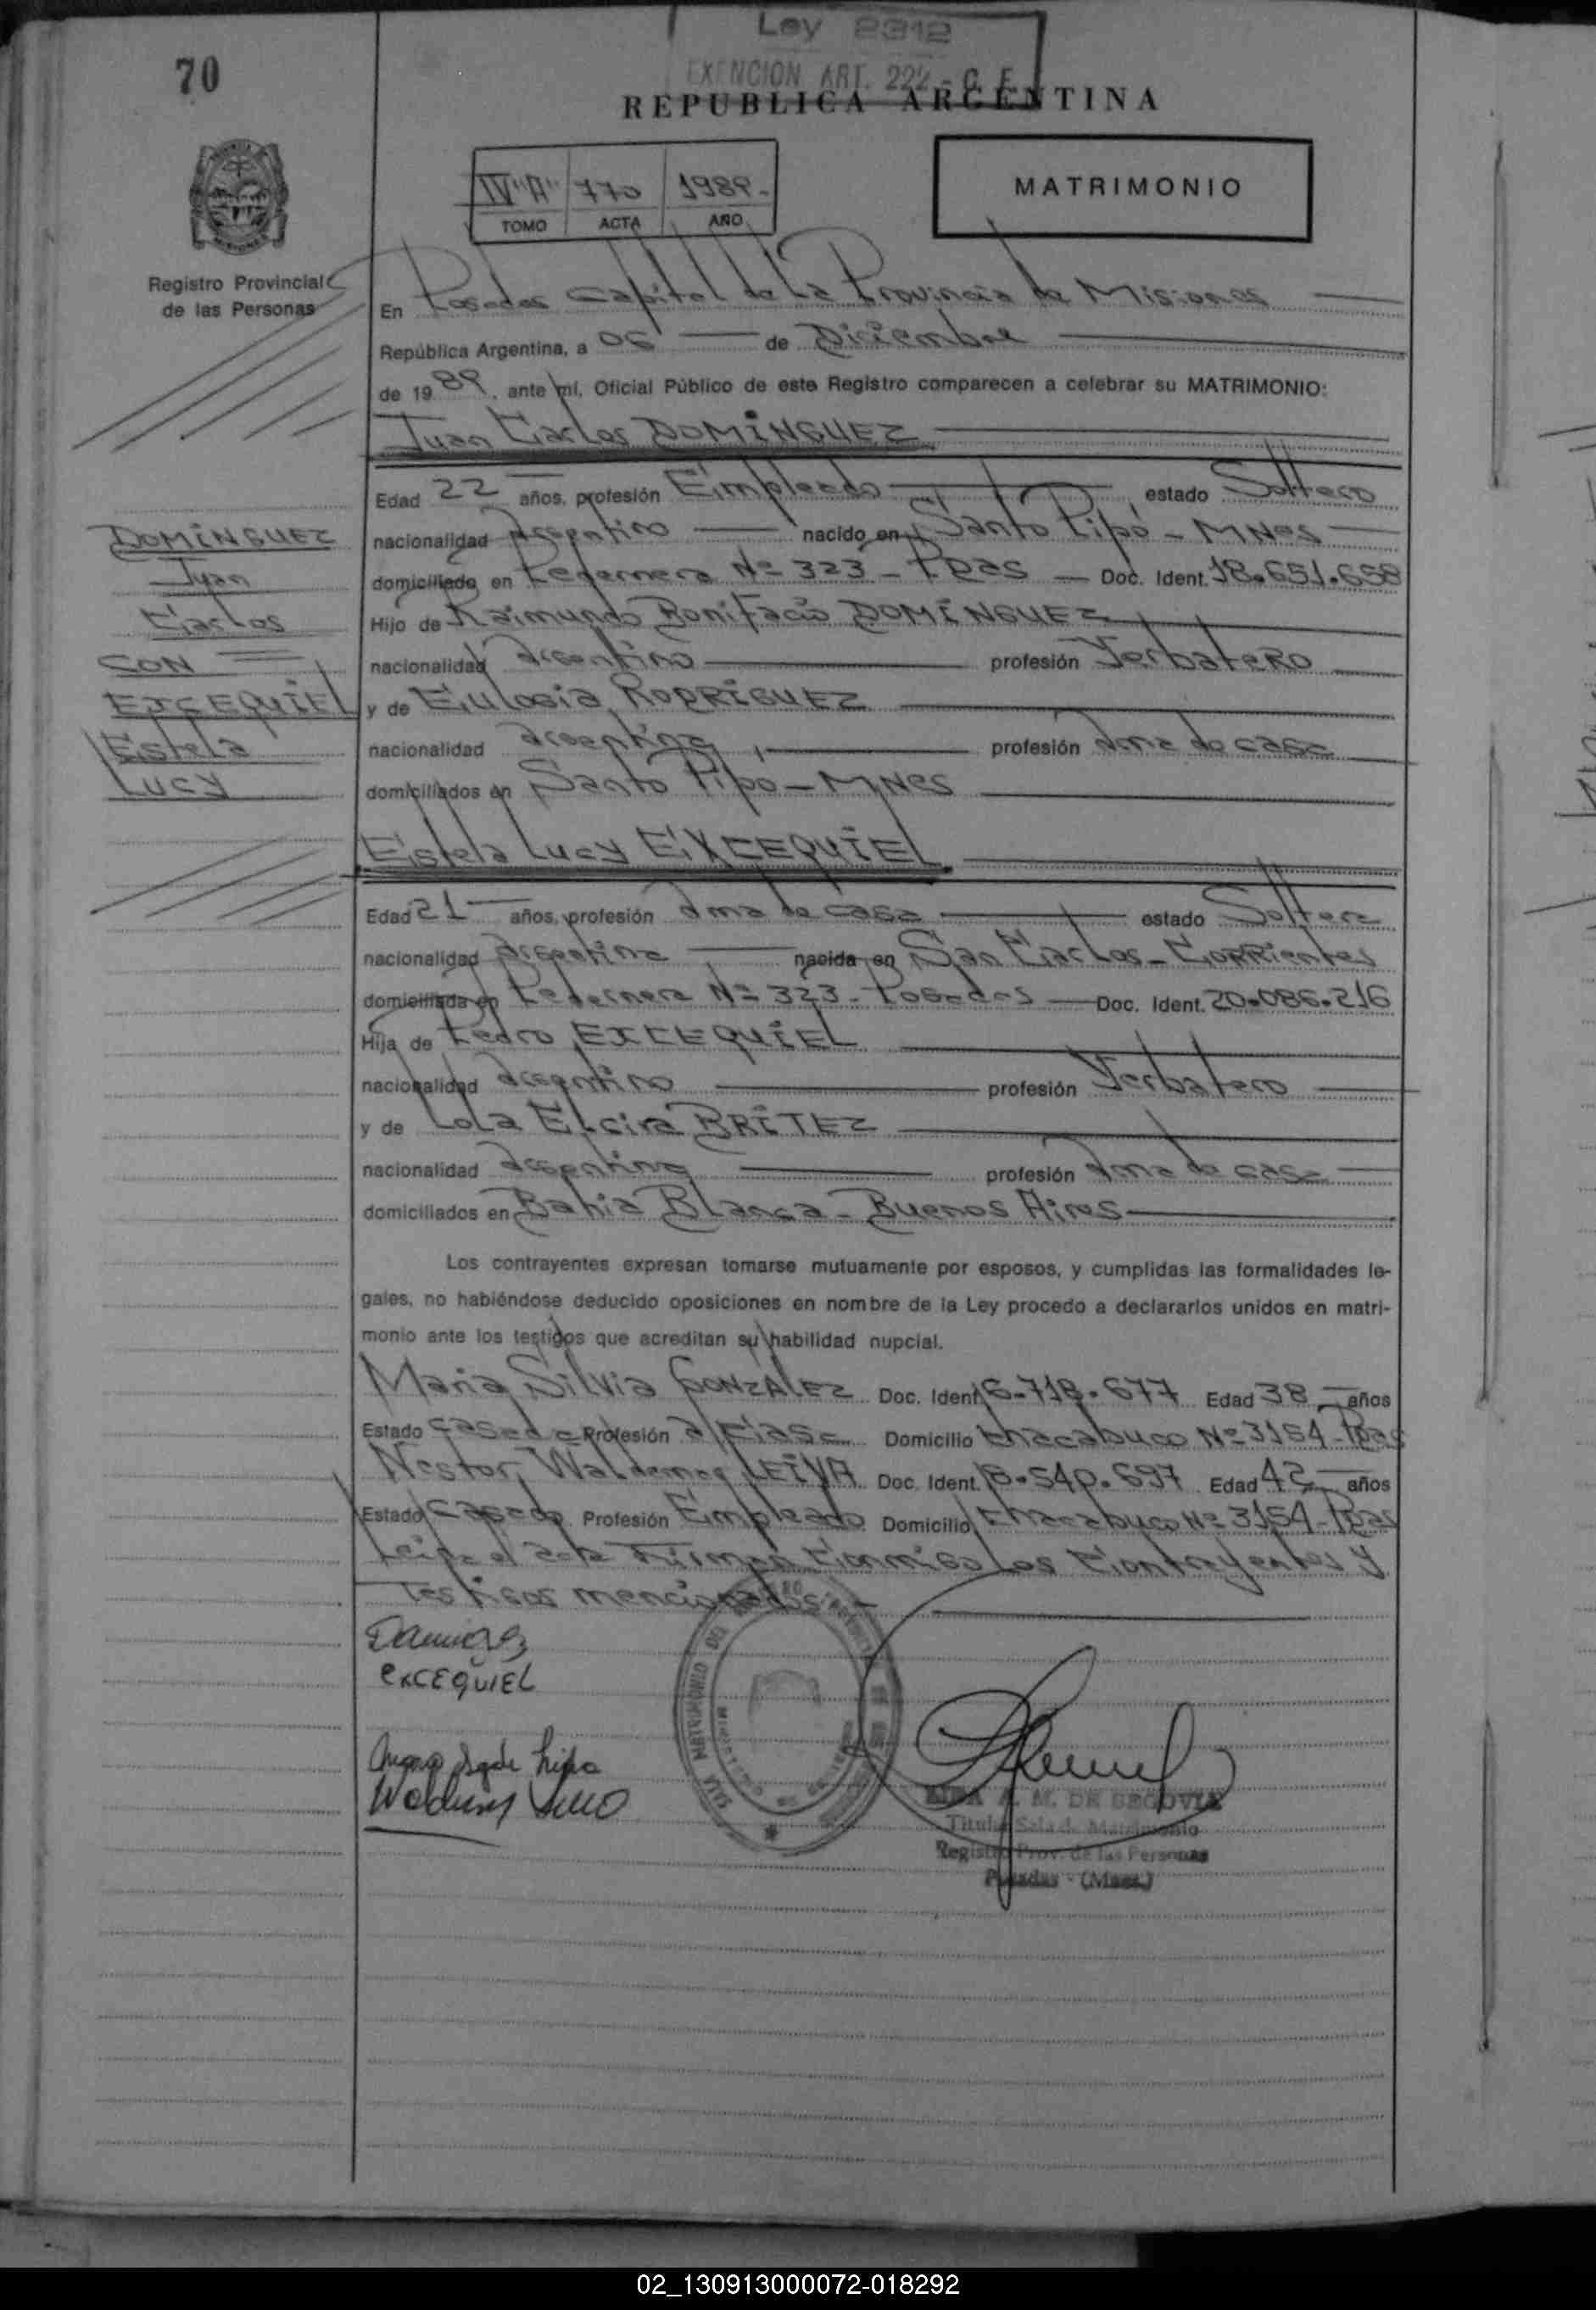 Ley 2312
EXENCION ART. 222 - C. F.
70
REPUBLICA ARGENTINA
IV"A" 770 1989.-
TOMO ACTA AÑO
MATRIMONIO
Registro Provincial
de las Personas
En Posadas Capital de La Provincia de Misiones
República Argentina, a 06 de Diciembre
de 1989, ante mí, Oficial Público de este Registro comparecen a celebrar su MATRIMONIO:
Juan Carlos DOMINGUEZ
Edad 22 años, profesión Empleado estado Soltero
nacionalidad Argentino nacido en Santo Pipó - MNes
domiciliado en Pedernera Nº 323 - Pdas - Doc. Ident. 18.651.658
Hijo de Raimundo Bonifacio DOMINGUEZ
nacionalidad Argentino profesión Yerbatero
y de Eulogia RODRIGUEZ
nacionalidad Argentina, profesión Ama de casa
domiciliados en Santo Pipó - MNes
DOMINGUEZ
Juan
Carlos
CON
EXCEQUIEL
Estela
Lucy
Estela Lucy EXCEQUIEL
Edad 21 años, profesión Ama de casa estado Soltera
nacionalidad Argentina nacida en San Carlos - Corrientes
domiciliada en Pedernera Nº 323 - Posadas - Doc. Ident. 20.086.216
Hija de Pedro EXCEQUIEL
nacionalidad Argentino profesión Yerbatero
y de Lola Elcira BRITEZ
nacionalidad Argentina profesión Ama de casa
domiciliados en Bahia Blanca - Buenos Aires
Los contrayentes expresan tomarse mutuamente por esposos, y cumplidas las formalidades le-
gales, no habiéndose deducido oposiciones en nombre de la Ley procedo a declararlos unidos en matri-
monio ante los testigos que acreditan su habilidad nupcial.
Maria Silvia GONZALEZ Doc. Ident. 6.718.677 Edad 38 años
Estado Casada Profesión A/Casa Domicilio Chacabuco Nº 3154 - Pdas
Nestor Waldemar LEIVA Doc. Ident. 8.540.697 Edad 42 años
Estado Casado Profesión Empleado Domicilio Chacabuco Nº 3154 - Pdas
Leida el acta Firman Conmigo Los Contrayentes y
Testigos mencionados.-
EXCEQUIEL
SALA MATRIMONIO DEL
A. M. DE SEGOVIA
Titular Sala de Matrimonio
Registro Prov. de las Personas
Posadas - (Mnes.)
02_130913000072-018292